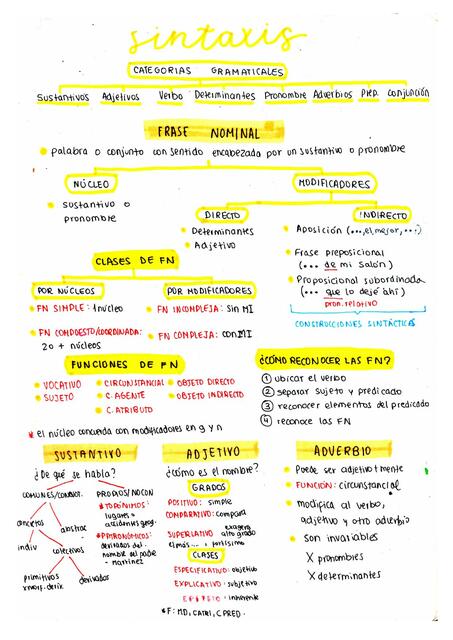 sintaxis
CATEGORÍAS GRAMATICALES
Sustantivos Adjetivos Verbo Determinantes Pronombre Adverbios Prep. Conjunción
FRASE NOMINAL
palabra o conjunto con sentido encabezada por un sustantivo o pronombre
NÚCLEO
sustantivo o
pronombre
MODIFICADORES
DIRECTO
Determinantes
Adjetivo
INDIRECTO
Aposición (..., el mejor, ...)
Frase preposicional
(... de mi salón)
Proposicional subordinada
(... que lo dejé ahí)
pron. relativo
CONSTRUCCIONES SINTÁCTICAS
CLASES DE FN
POR NÚCLEOS
FN SIMPLE: 1 núcleo
FN COMPUESTO/COORDINADA:
2 o + núcleos
POR MODIFICADORES
FN INCOMPLEJA: sin MI
FN COMPLEJA: con MI
FUNCIONES DE FN
VOCATIVO
SUJETO
CIRCUNSTANCIAL
C. AGENTE
C. ATRIBUTO
OBJETO DIRECTO
OBJETO INDIRECTO
* el núcleo concuerda con modificadores en g y n
¿CÓMO RECONOCER LAS FN?
1 ubicar el verbo
2 separar sujeto y predicado
3 reconocer elementos del predicado
4 reconoce las FN
SUSTANTIVO
¿De qué se habla?
COMUNES/CONNOT.
concretos
abstrac
indiv
colectivos
primitivos
derivados
PROPIOS/NO CON
* TOPÓNIMOS:
lugares o
accidentes geog.
* PATRONÍMICOS:
derivados del
nombre del padre
- martínez
ADJETIVO
¿Cómo es el nombre?
GRADOS
POSITIVO: simple
COMPARATIVO: compara
SUPERLATIVO exagera
alto grado
el más... ísimo
CLASES
ESPECIFICATIVO: objetivo
EXPLICATIVO: subjetivo
EPÍTETO: inherente
* F: MD, CATRI, C PRED.
ADVERBIO
Puede ser adjetivo + mente
FUNCIÓN: circunstancial
modifica al verbo,
adjetivo y otro adverbio
son invariables
X pronombres
X determinantes